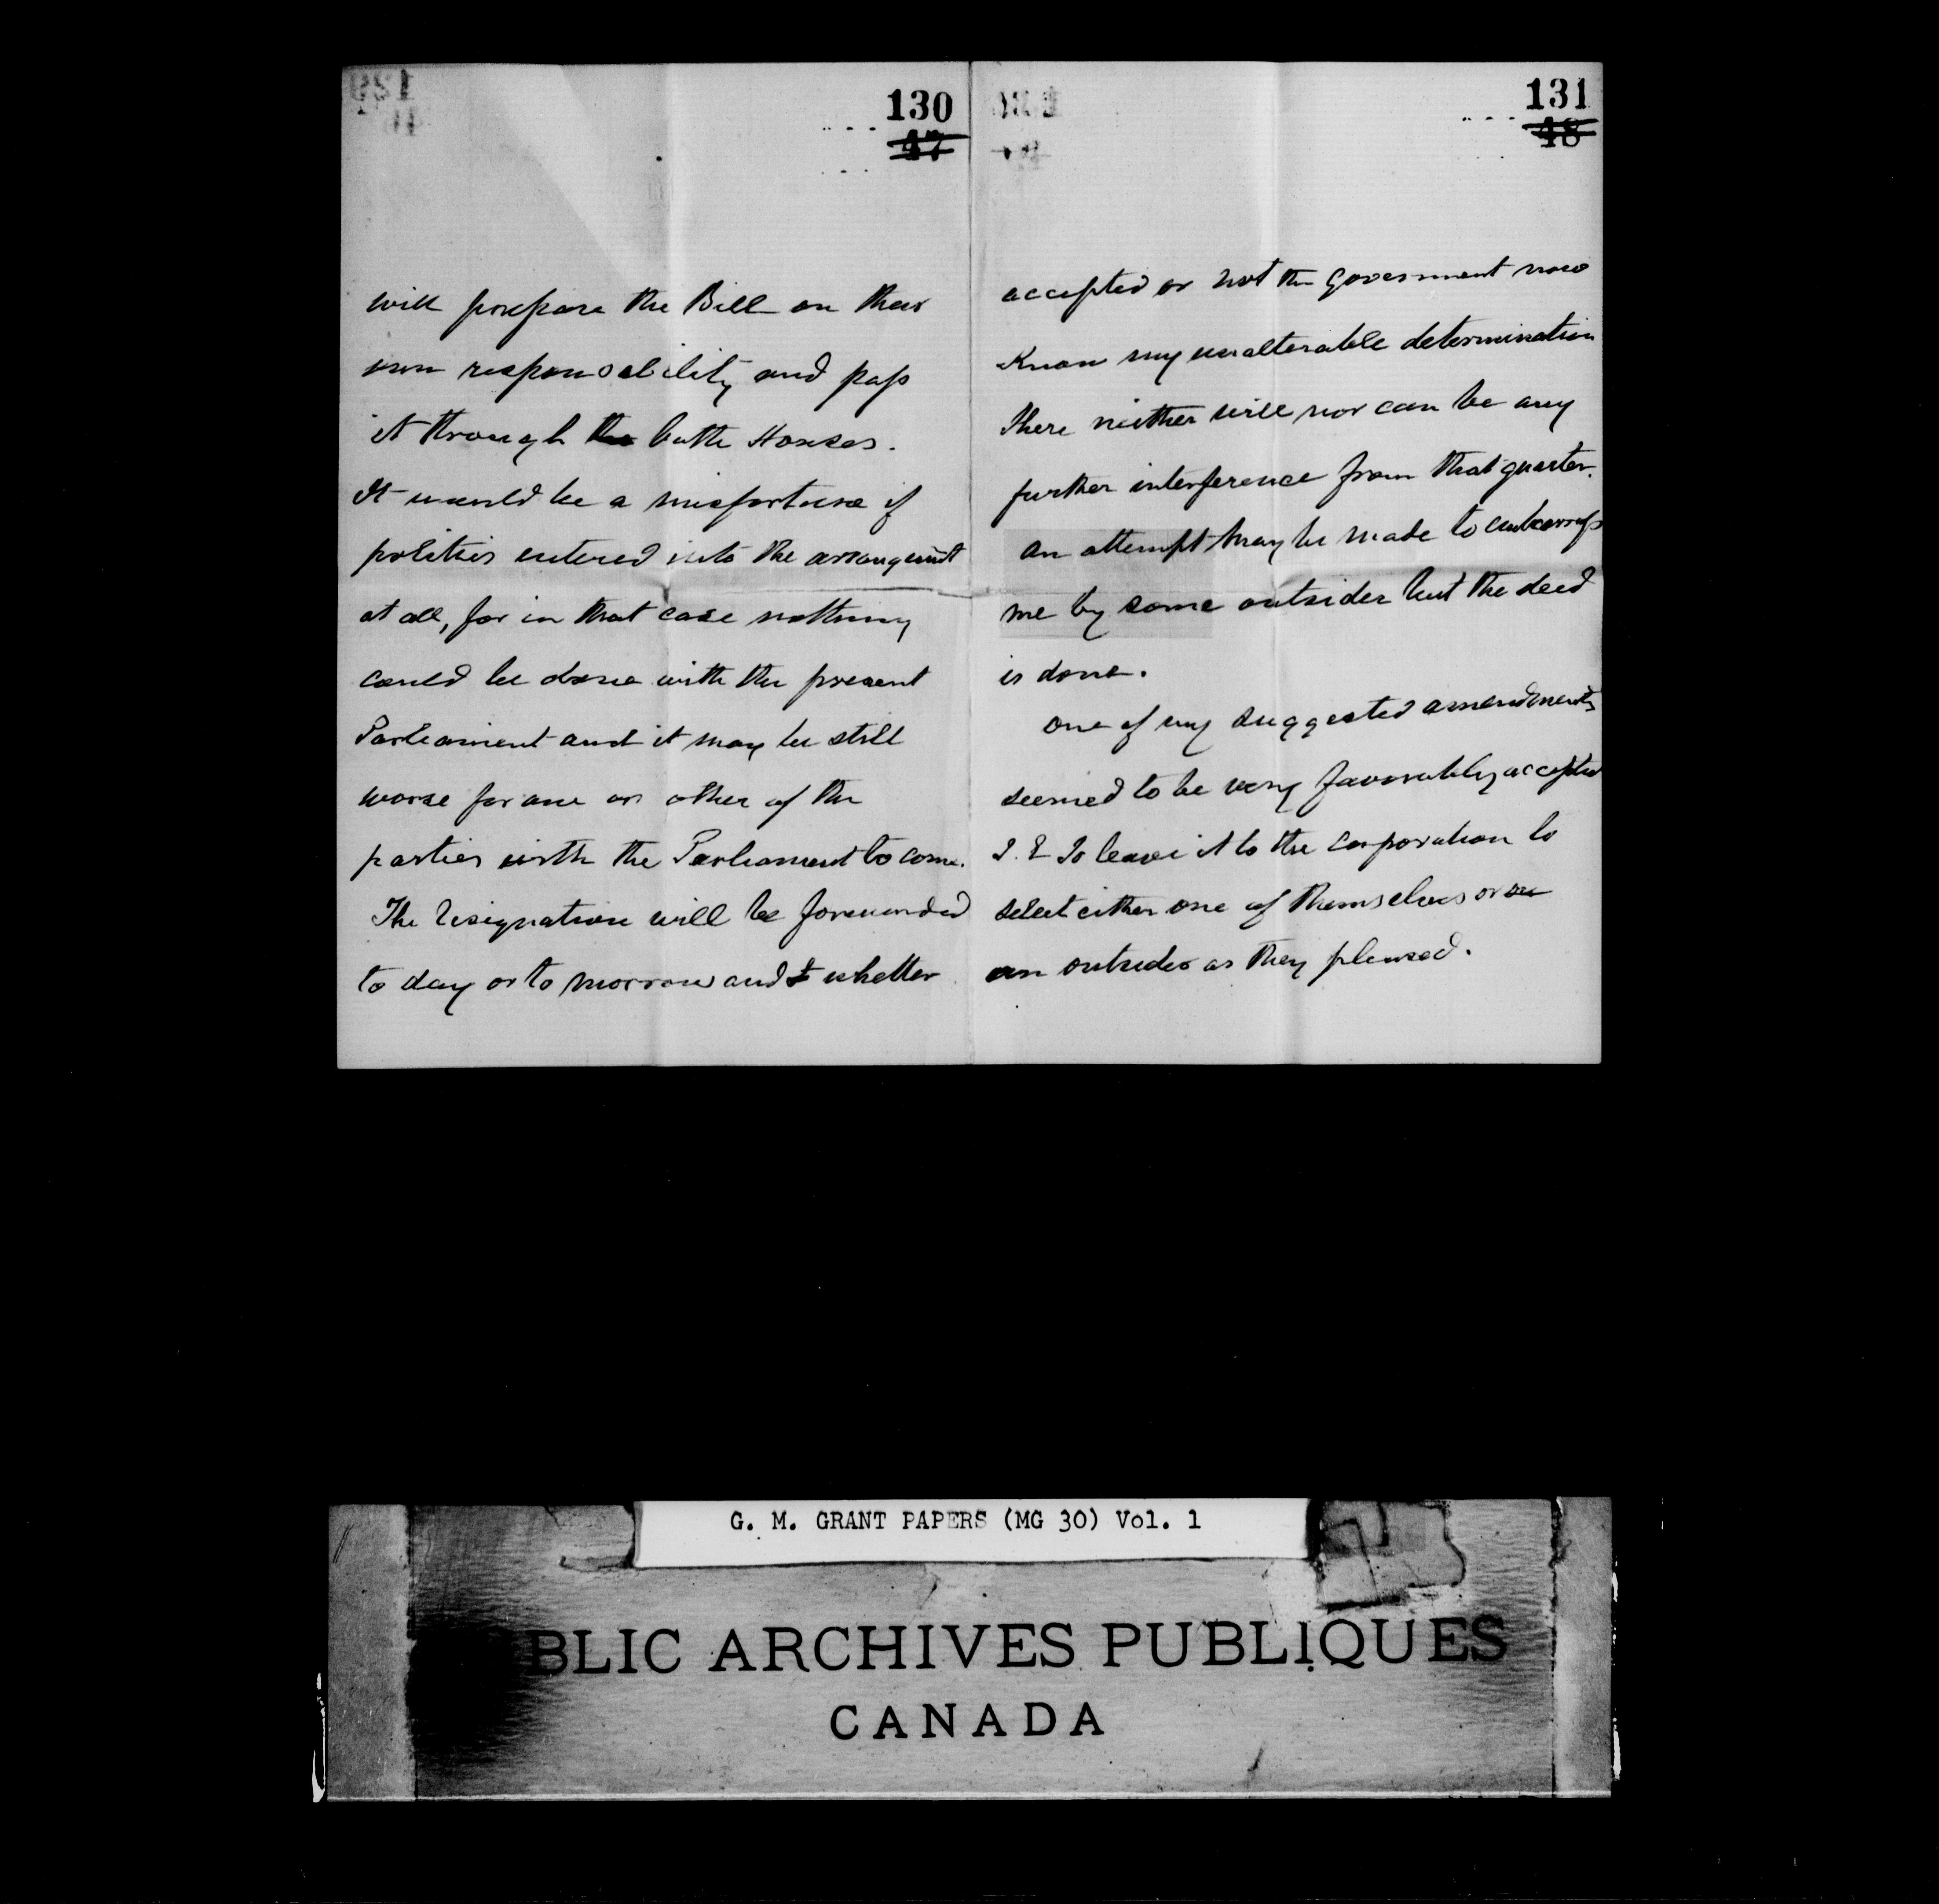 130
47
will prepare the Bill on their
own responsibility and pass
it through the both Houses.
It would be a misfortune if
politics entered into the arrangemt
at all, for in that case nothing
could be done with the present
Parliament and it may be still
worse for one or other of the
parties with the Parliament to come.
The resignation will be forwarded
to day or to morrow and I whether
131
48
accepted or not the government now
Know my unalterable determination
There neither will nor can be any
further interference from that quarter.
An attempt may be made to embarrass
me by some outsider but the deed
is done.
One of my suggested amendments
seemed to be very favorably accepted
I. E to leave it to the corporation to
select either one of themselves or an
an outsider as they pleased.
G. M. GRANT PAPERS (MG 30) Vol. 1
BLIC ARCHIVES PUBLIQUES
CANADA